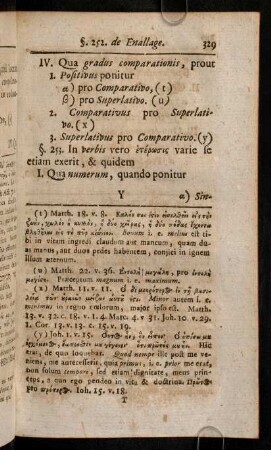 §. 252. de Enallage. 329
IV. Qua gradus comparationis, prout
1. Positivus ponitur
α) pro Comparativo, (t)
β) pro Superlativo. (u)
2. Comparativus pro Superlati-
vo. (x)
3. Superlativus pro Comparativo. (y)
§. 253. In verbis vero ἑτέρωσις varie se
etiam exerit, & quidem
I. Qua numerum, quando ponitur
Y α) Sin-
(t) Matth. 18. v. 8. Καλόν σοι ἐςὶν εἰσελθεῖν εἰς τὴν
ζωὴν, χωλὸν ἢ κυλλὸν, ἢ δύο χεῖρας, ἢ δύο πόδας ἔχοντα
βληθῆναι εἰς τὸ πῦρ αἰώνιον. Bonum i. e. melius est ti-
bi in vitam ingredi claudum aut mancum, quam du-
as manus, aut duos pedes habentem, conjici in ignem
illum æternum.
(u) Matth. 22. v. 36. Ἐντολὴ μεγάλη, pro ἐντολὴ
μεγίςη. Præceptum magnum i. e. maximum.
(x) Matth. 11. v. 11. Ὁ δὲ μικρότερος ἐν τῇ βασι-
λείᾳ τῶν οὐρανῶν μείζων αὐτοῦ ἐςι. Minor autem i. e.
minimus in regno cœlorum, major ipso est. Matth.
13. v. 32. c. 18. v. 1. 4. Marc. 4. v. 31. Joh. 10. v. 29.
1. Cor. 13. v. 13. c. 15. v. 19.
(y) Joh. 1. v. 15. Οὗτος ἦν, ὃν εἶπον· Ὁ ὀπίσω μου
ἐρχόμενος, ἔμπροσθέν μου γέγονεν· ὅτι πρῶτός μου ἦν. Hic
erat, de quo loquebar. Quod nempe ille post me ve-
niens, me antecesserit, quia primus, i. e. prior me erat,
non solum tempore, sed etiam dignitate, meus prin-
ceps, a quo ego pendeo in vita & doctrina. Πρῶτος
pro πρότερος. Joh. 15. v. 18.